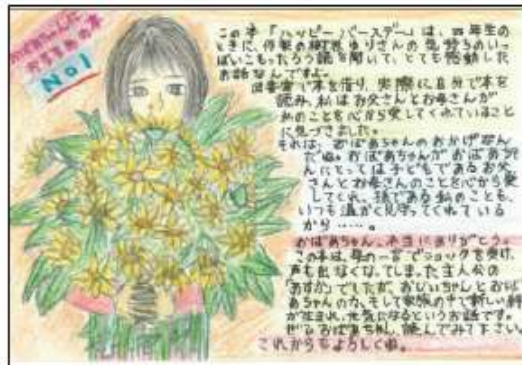 おばあちゃんに
おすすめの本
No1
この本「ハッピーバースデー」は、四年生の
ときに、
さんの気持ちのいっ
ぱいこもったろう読を聞いて、とても感動した
お話なんですよ。
図書室で本を借り、実際に自分で本を
読み、私はお父さんとお母さんが
私のことを心から愛してくれていること
に気づきました。
それは、おばあちゃんのおかげなん
だね。おばあちゃんがおばあちゃ
んにとっては子どもであるお父
さんとお母さんのことを心から愛
してくれ、孫である私のことも、
いつも温かく見守ってくれている
から……。
おばあちゃん、本当にありがとう。
この本は、母の一言でショックを受け、
声も出なくなってしまった主人公の
「あすか」でしたが、おじいちゃんとおば
あちゃんの力、そして家族の中で新しい絆
が生まれ、元気になるというお話です。
ぜひおばあちゃんも読んでみて下さい。
これからもよろしくね。